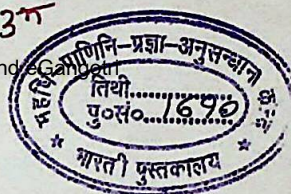 उत
nd eGangotri
महर्षि पाणिनि-प्रज्ञा-अनुसन्धान
तिथी..................
पु०सं० 1690
भारती पुस्तकालय